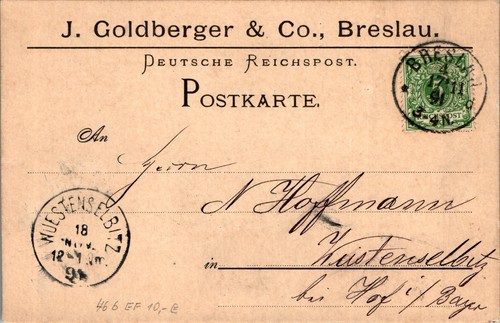 J. Goldberger & Co., Breslau.
DEUTSCHE REICHSPOST.
POSTKARTE.
BRESLAU
17 11
91
3-4N
An
Herrn
N Hoffmann
in Wüstenselbitz
bei Hof i/ Bayer
WUESTENSELBITZ
18
NOV.
12-1
91
46 b EF 10,-